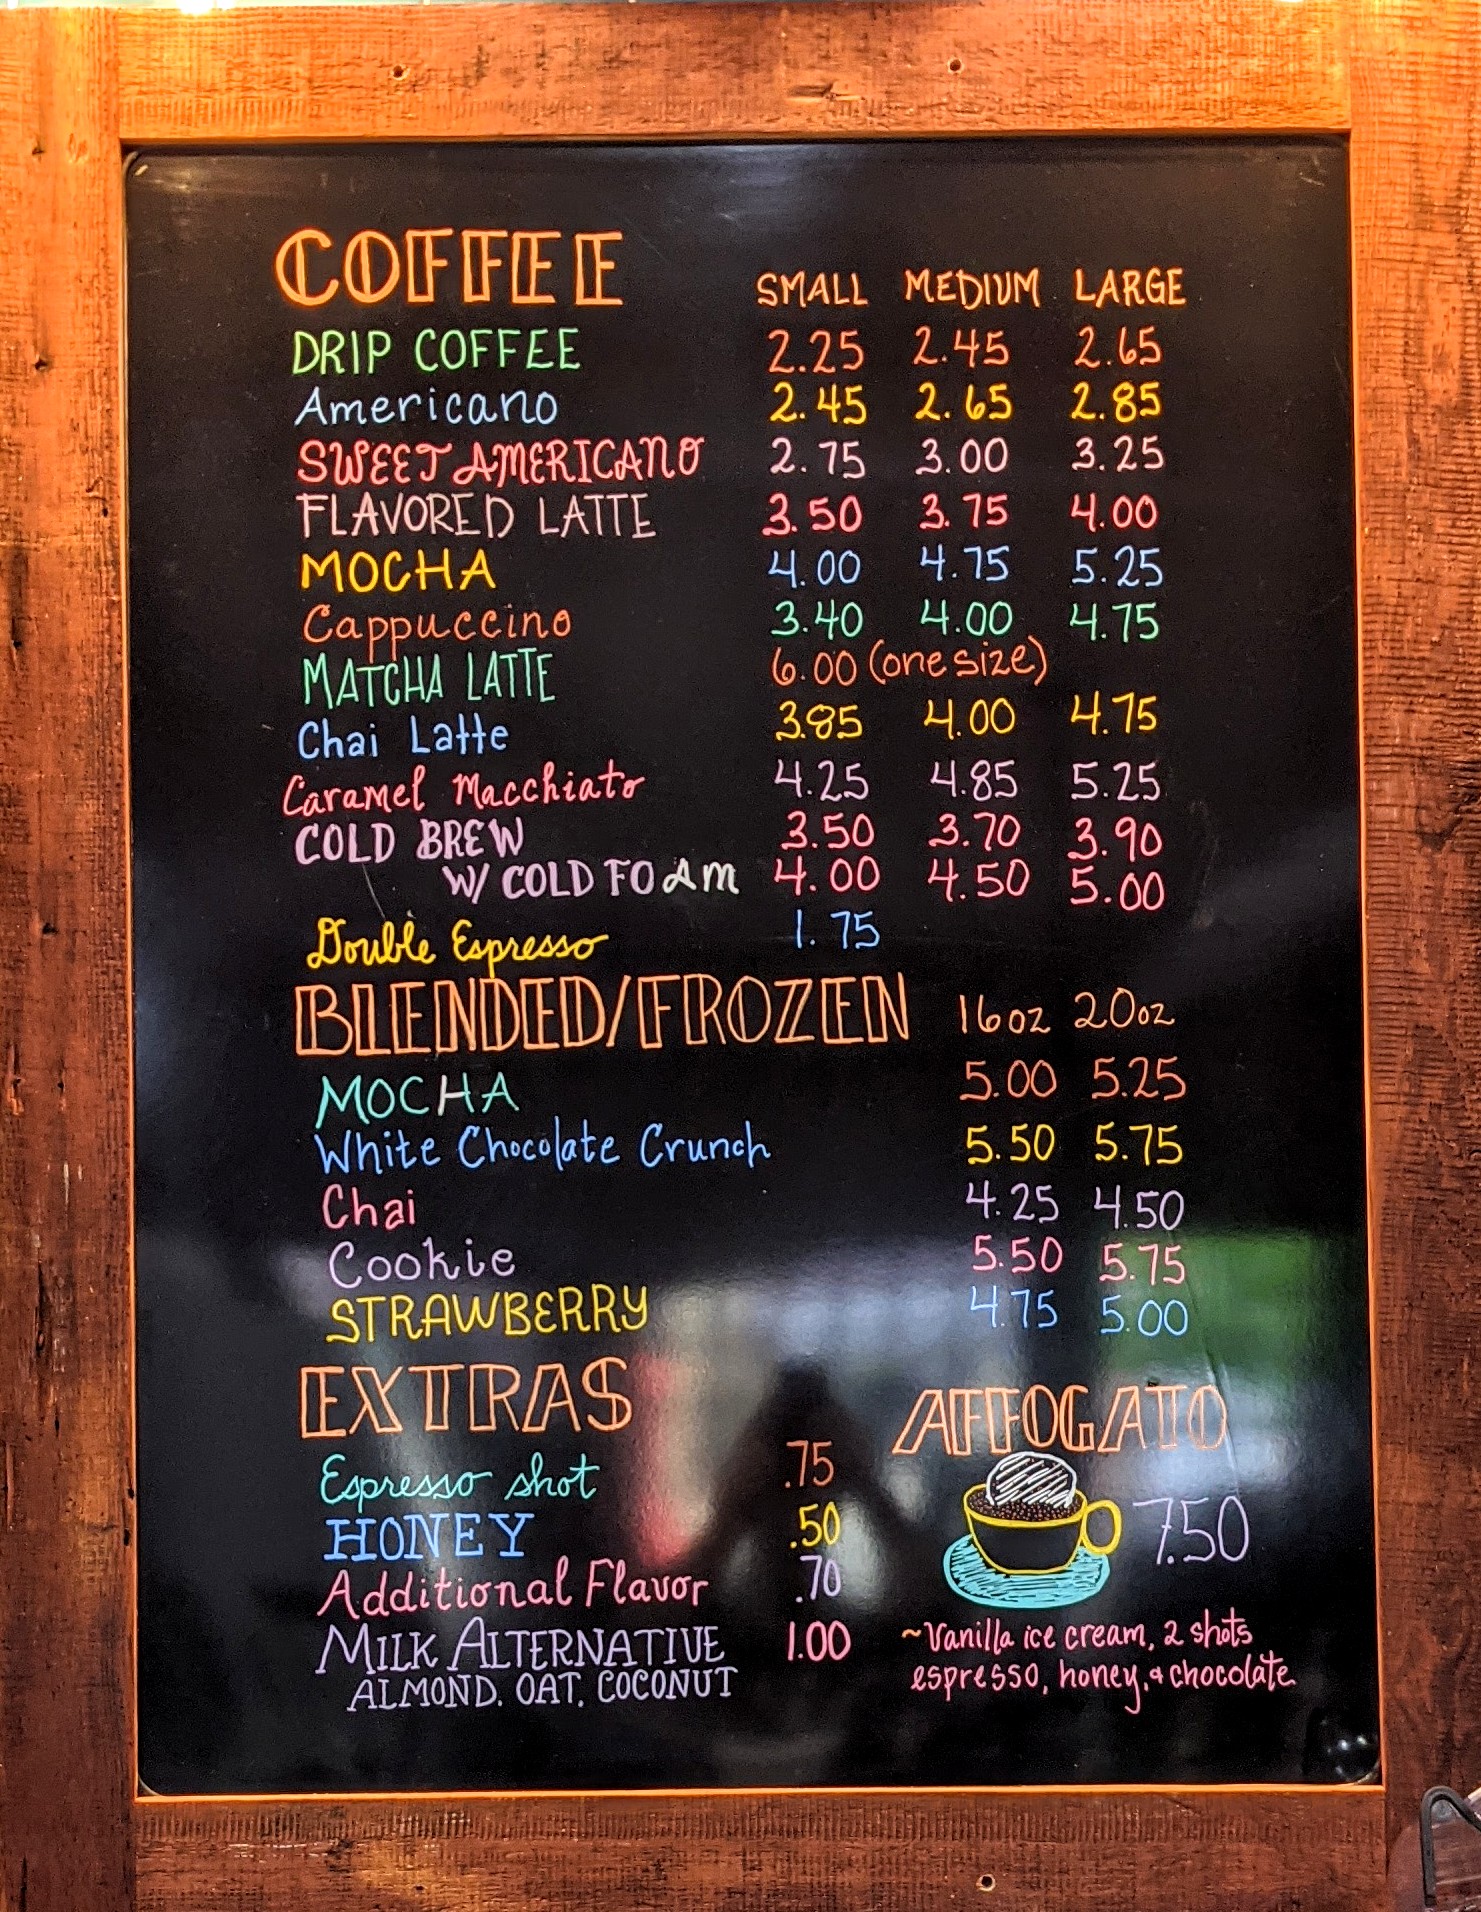 COFFEE SMALL MEDIUM LARGE
DRIP COFFEE 2.25 2.45 2.65
Americano 2.45 2.65 2.85
SWEET AMERICANO 2.75 3.00 3.25
FLAVORED LATTE 3.50 3.75 4.00
MOCHA 4.00 4.75 5.25
Cappuccino 3.40 4.00 4.75
MATCHA LATTE 6.00 (one size)
Chai Latte 3.85 4.00 4.75
Caramel Macchiato 4.25 4.85 5.25
COLD BREW 3.50 3.70 3.90
W/ COLD FOAM 4.00 4.50 5.00
Double Espresso 1.75
BLENDED/FROZEN 16oz 20oz
MOCHA 5.00 5.25
White Chocolate Crunch 5.50 5.75
Chai 4.25 4.50
Cookie 5.50 5.75
STRAWBERRY 4.75 5.00
EXTRAS
Espresso shot .75
HONEY .50
Additional Flavor .70
MILK ALTERNATIVE 1.00
ALMOND. OAT. COCONUT
AFFOGATO
7.50
~Vanilla ice cream, 2 shots
espresso, honey, & chocolate